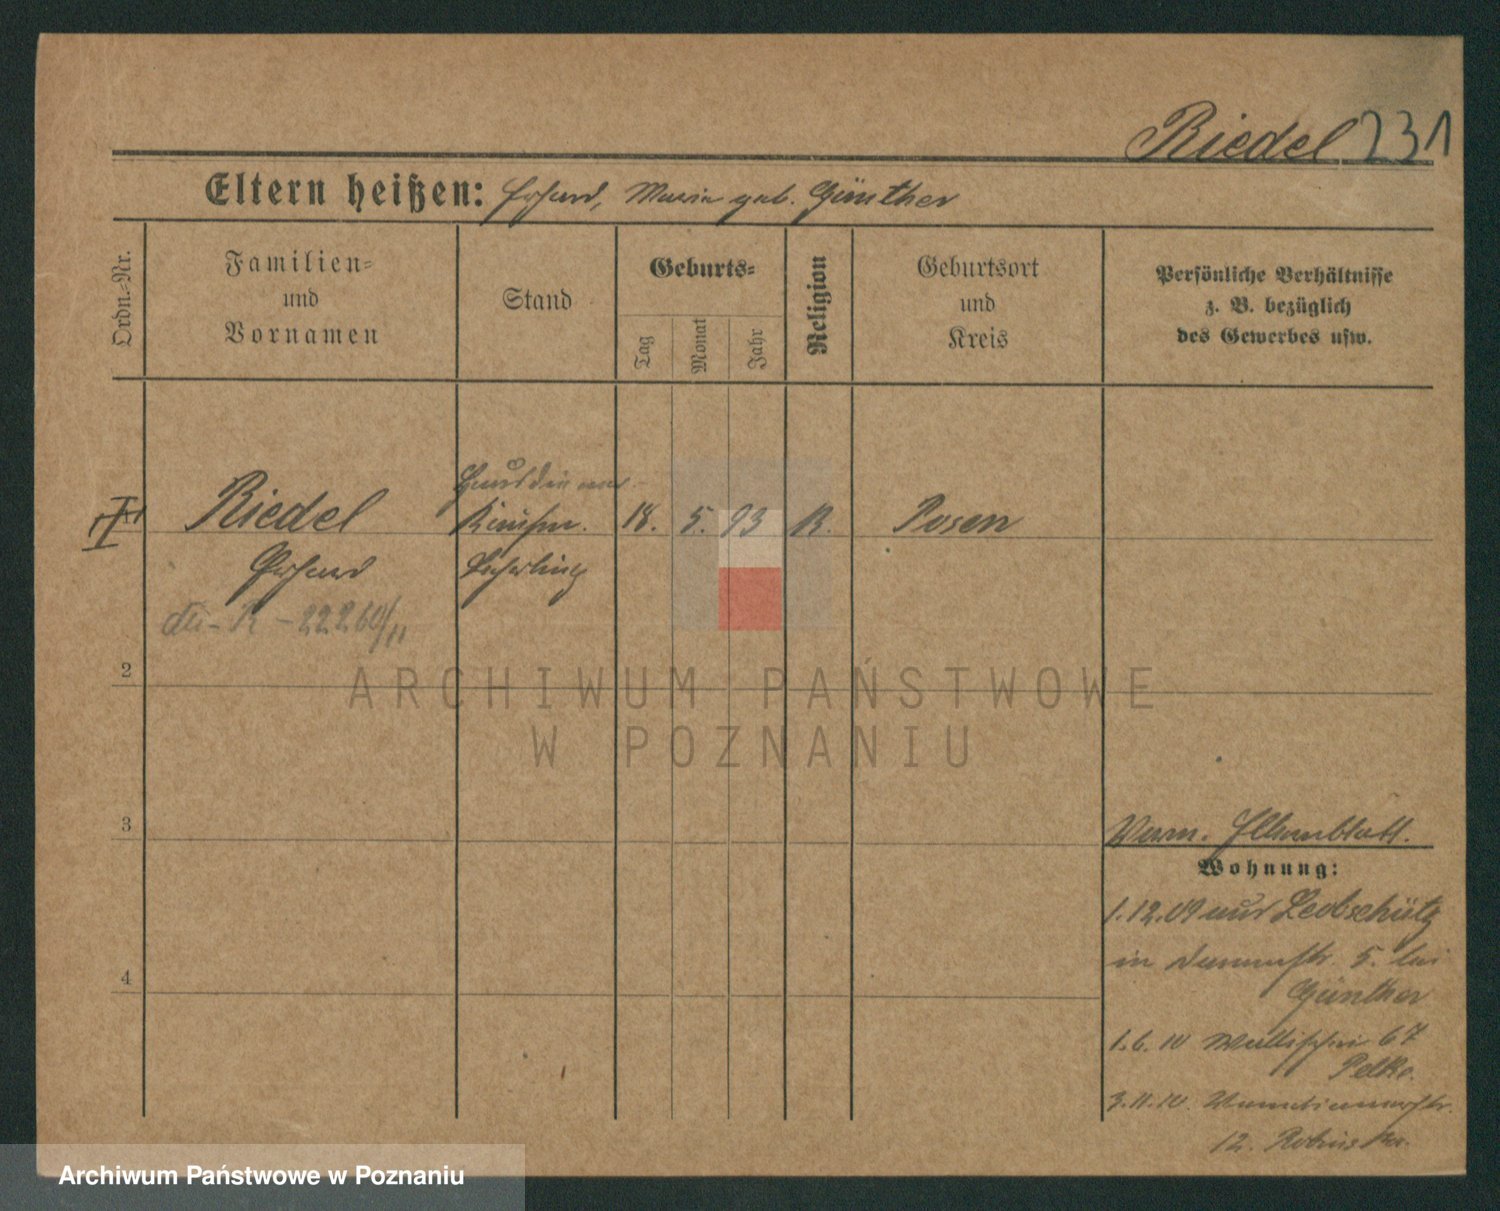 Riedel 231
Eltern heißen: Erhard, Maria geb. Günther
Ordn.-Nr.
Familien-
und
Vornamen
Stand
Geburts-
Tag
Monat
Jahr
Religion
Geburtsort
und
Kreis
Persönliche Verhältnisse
z. B. bezüglich
des Gewerbes usw.
Hausdiener
Riedel Kaufm. 18. 5. 93 K. Posen
Erhard Lehrling
R - 22260/11
2
ARCHIWUM PAŃSTWOWE
W POZNANIU
3
Verm. Elternblatt.
Wohnung:
1.12.09 aus Leobschütz
in 5. bei
4
Günther
1.6.10 Wallischei 67
Pelko.
3.11.10.
12.
Archiwum Państwowe w Poznaniu